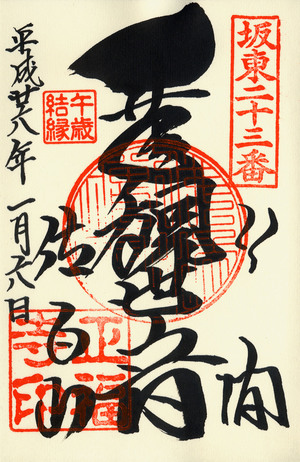 坂東二十三番
午歳
結縁
観世音
間
佐白山
正福
寺印
平成廿八年一月六日